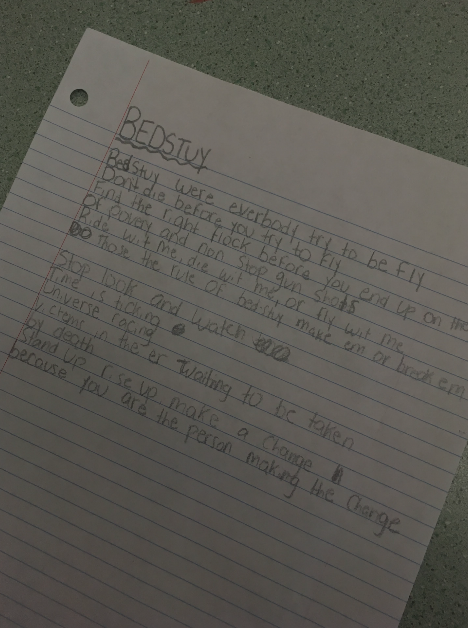 BEDSTUY
Bedstuy were everbody try to be fly
Dont die before you try to fly
Find the right flock before you end up on the
of povery and non stop gun shots
Ride wit me, die wit me, or fly wit me
Those the rule of bedstuy make em or break em
Stop look and watch
Time is ticking
Universe racing
victems in the er waiting to be taken
by death
Stand up rise up make a change
because you are the person making the change